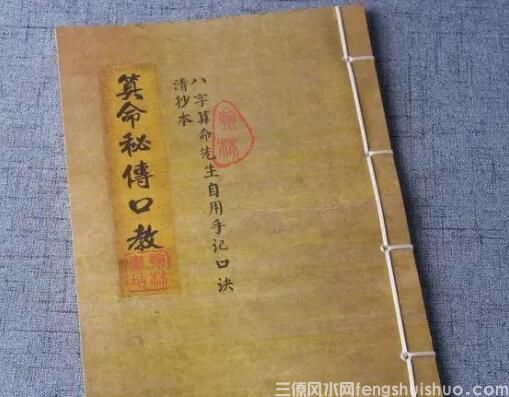 八字算命先生自用手记口诀
清抄本
算命秘傳口教
三僚风水网fengshuishuo.com